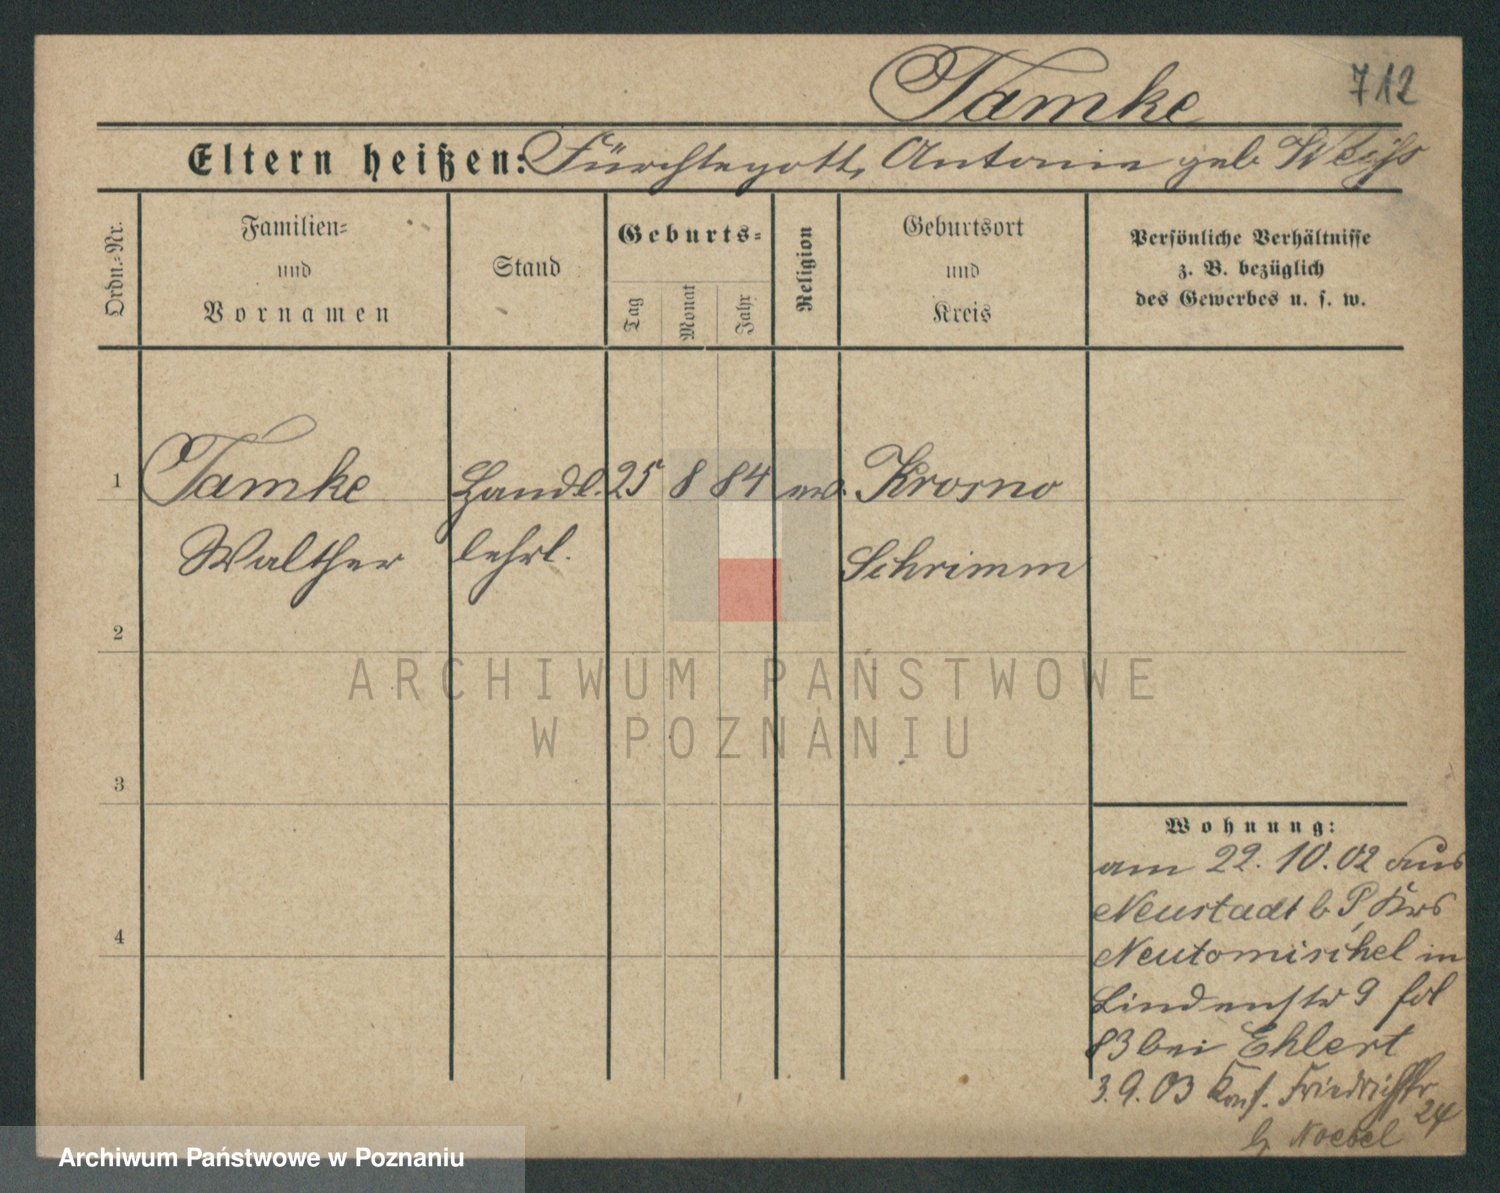 Tamke
712
Eltern heißen: Fürchtegott, Antonie geb Weiß
Ordn.-Nr.
Familien-
und
Vornamen
Stand
Geburts-
Tag
Monat
Jahr
Religion
Geburtsort
und
Kreis
Persönliche Verhältnisse
z. B. bezüglich
des Gewerbes u. s. w.
1 Tamke Handl. 25 8 84 ev. Krosno
Walther lehrl. Schrimm
2
3
4
Wohnung:
am 22. 10. 02 aus
Neustadt b P, Krs
Neutomischel in
Lindenstr 9 fol
83 bei Ehlert
3. 9. 03 Friedrichstr
24
b Noebel
ARCHIWUM PAŃSTWOWE
W POZNANIU
Archiwum Państwowe w Poznaniu